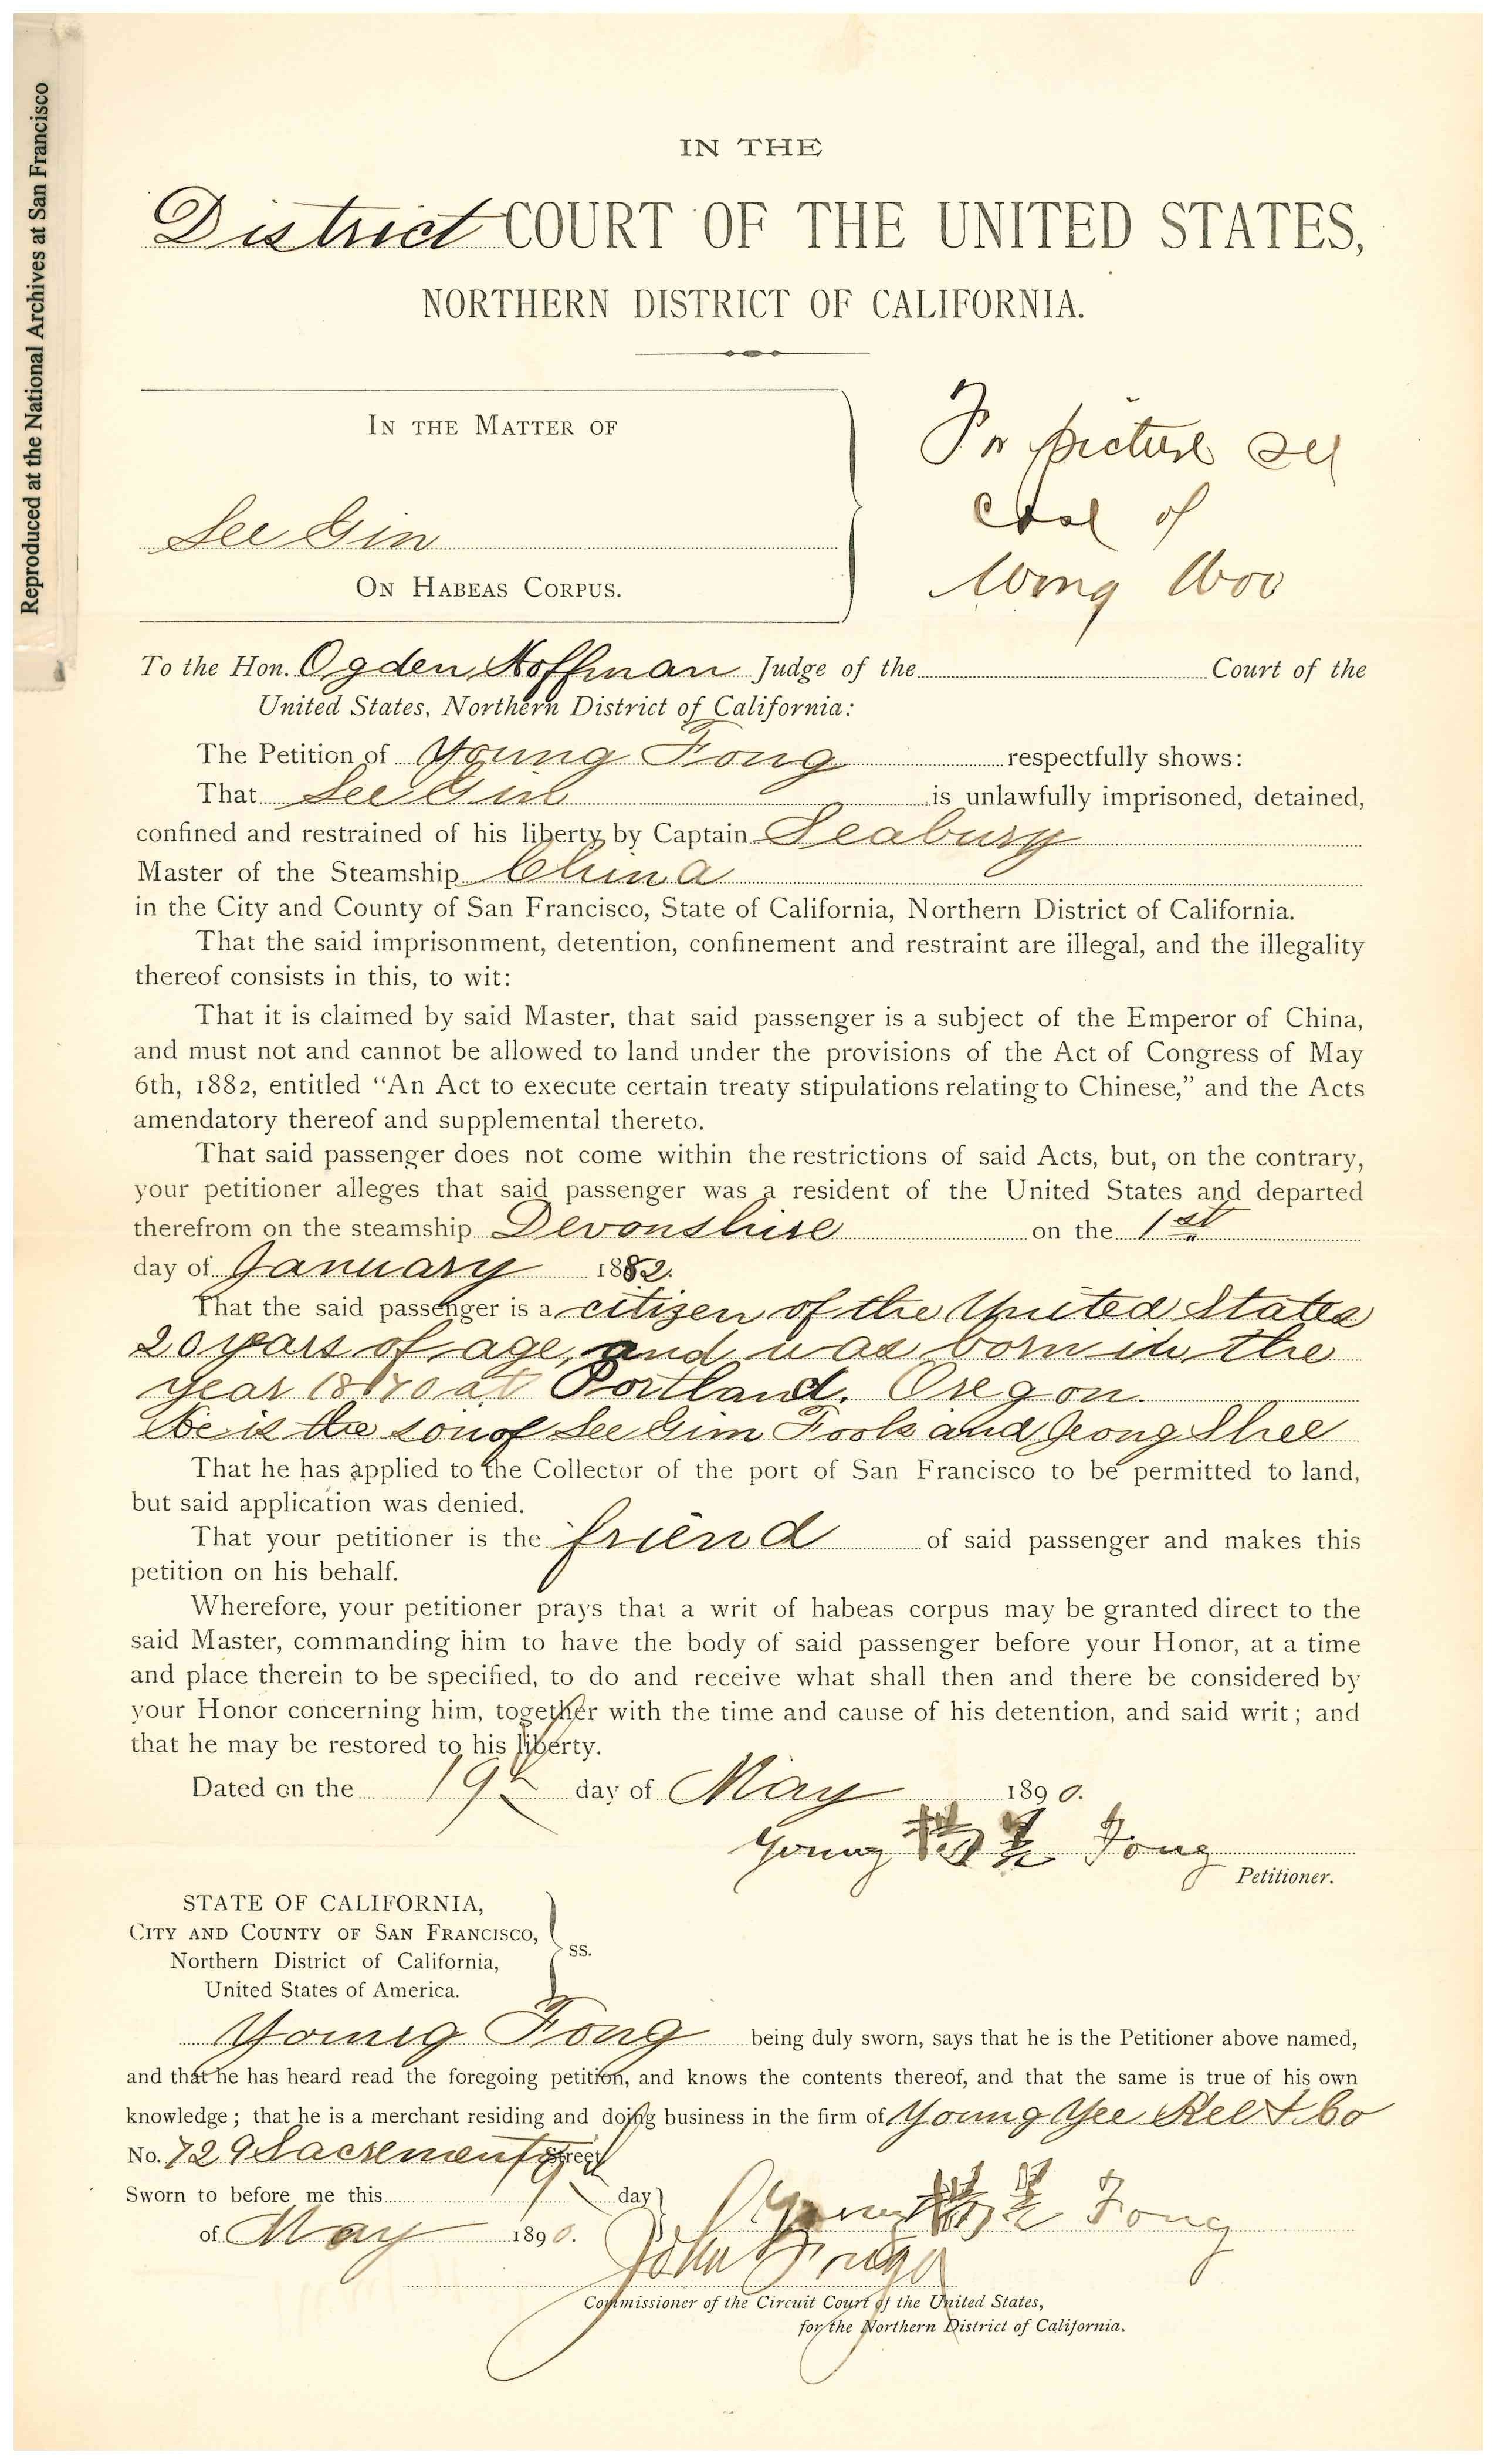 Reproduced at the National Archives at San Francisco
IN THE
District COURT OF THE UNITED STATES,
NORTHERN DISTRICT OF CALIFORNIA.
IN THE MATTER OF
See Gin
ON HABEAS CORPUS.
For picture see
case of
Wong Woo
To the Hon. Ogden Hoffman Judge of the Court of the
United States, Northern District of California:
The Petition of Young Fong respectfully shows:
That See Gin is unlawfully imprisoned, detained,
confined and restrained of his liberty by Captain Seabury
Master of the Steamship China
in the City and County of San Francisco, State of California, Northern District of California.
That the said imprisonment, detention, confinement and restraint are illegal, and the illegality
thereof consists in this, to wit:
That it is claimed by said Master, that said passenger is a subject of the Emperor of China,
and must not and cannot be allowed to land under the provisions of the Act of Congress of May
6th, 1882, entitled “An Act to execute certain treaty stipulations relating to Chinese,” and the Acts
amendatory thereof and supplemental thereto.
That said passenger does not come within the restrictions of said Acts, but, on the contrary,
your petitioner alleges that said passenger was a resident of the United States and departed
therefrom on the steamship Devonshire on the 1st
day of January 1882.
That the said passenger is a citizen of the United States
20 years of age, and was born in the
year 1870 at Portland, Oregon.
He is the son of See Gim Fook and Jeong Shee
That he has applied to the Collector of the port of San Francisco to be permitted to land,
but said application was denied.
That your petitioner is the friend of said passenger and makes this
petition on his behalf.
Wherefore, your petitioner prays that a writ of habeas corpus may be granted direct to the
said Master, commanding him to have the body of said passenger before your Honor, at a time
and place therein to be specified, to do and receive what shall then and there be considered by
your Honor concerning him, together with the time and cause of his detention, and said writ; and
that he may be restored to his liberty.
Dated on the 19th day of May 1890.
Young Fong
Petitioner.
STATE OF CALIFORNIA,
CITY AND COUNTY OF SAN FRANCISCO,
Northern District of California,
United States of America.
ss.
Young Fong being duly sworn, says that he is the Petitioner above named,
and that he has heard read the foregoing petition, and knows the contents thereof, and that the same is true of his own
knowledge; that he is a merchant residing and doing business in the firm of Young Yee Kee & Co
No. 729 Sacremento Street
Sworn to before me this 19 day
of May 1890.
Young Fong
John
Commissioner of the Circuit Court of the United States,
for the Northern District of California.